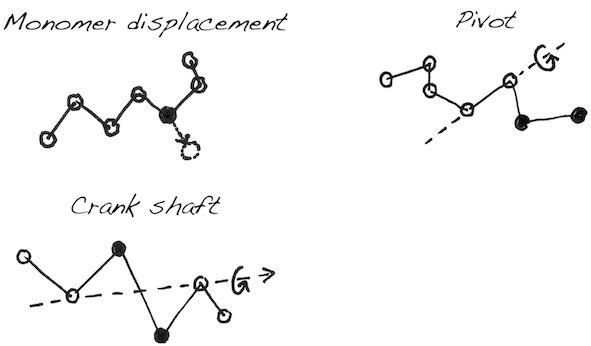 Monomer displacement
Pivot
Crank shaft